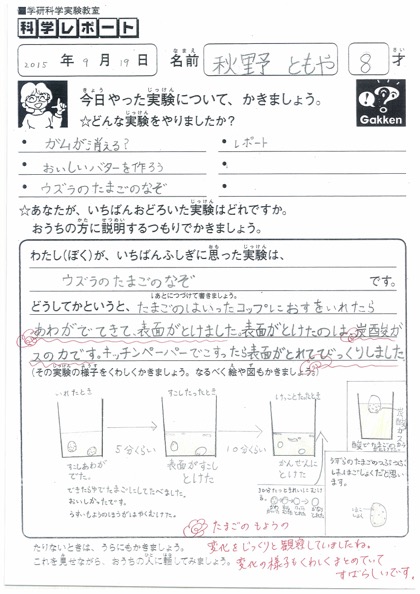 ■学研科学実験教室
科学レポート
2015 年 9 月 19 日 名前 秋野 ともや 8 才
今日やった実験について、かきましょう。
☆どんな実験をやりましたか?
Gakken
• ガムが消える? • レポート
• おいしいバターを作ろう •
• ウズラのたまごのなぞ •
☆あなたが、いちばんおどろいた実験はどれですか。
おうちの方に説明するつもりでかきましょう。
わたし(ぼく)が、いちばんふしぎに思った実験は、
ウズラのたまごのなぞ です。
↓あとにつづけて書きましょう。
どうしてかというと、たまごのはいったコップにおすをいれたら
あわがでてきて、表面がとけました。表面がとけたのは、炭酸ガ
スの力です。キッチンペーパーでこすったら表面がとれてびっくりしました
(その実験の様子をくわしくかきましょう。なるべく絵や図もかきましょう。)
いれたとき
すこしたったとき
5分くらい
10分くらい
すこしあわが
でた。
表面がすこし
とけた
かんぜんに
とけた
できたらゆでたまごにしてたべました。
おいしかったです。
炭酸ガス
たまごのもようの
変化をじっくりと観察していましたね。
変化の様子もくわしくまとめていて
すばらしいです。
たりないときは、うらにもかきましょう。
これを見せながら、おうちの人に話してみましょう。